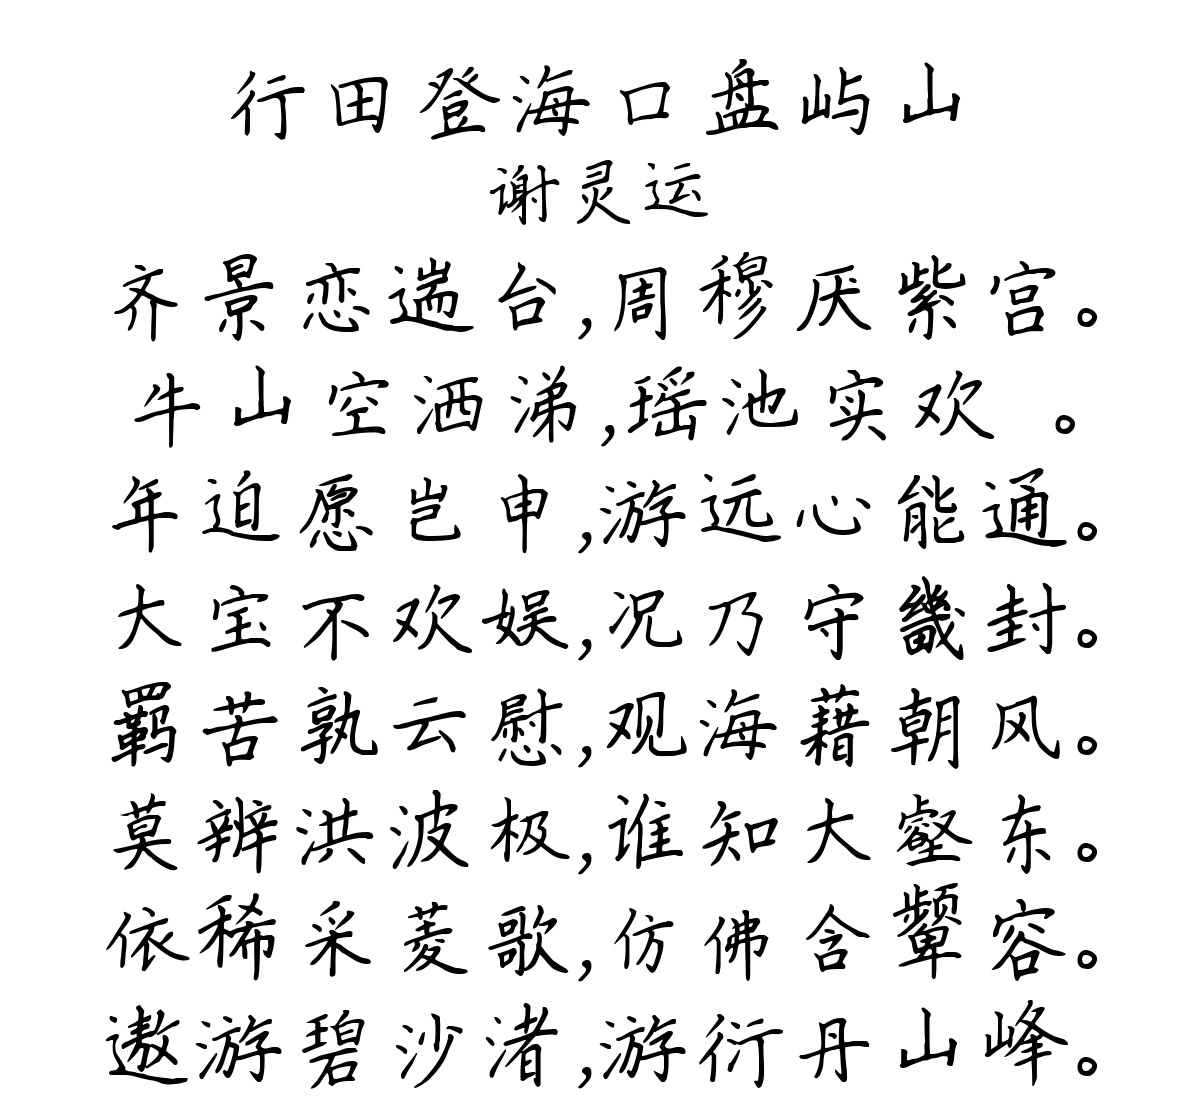 行田登海口盘屿山
谢灵运
齐景恋遄台,周穆厌紫宫。
牛山空洒涕,瑶池实欢 。
年迫愿岂申,游远心能通。
大宝不欢娱,况乃守畿封。
羁苦孰云慰,观海藉朝风。
莫辨洪波极,谁知大壑东。
依稀采菱歌,仿佛含颦容。
遨游碧沙渚,游衍丹山峰。